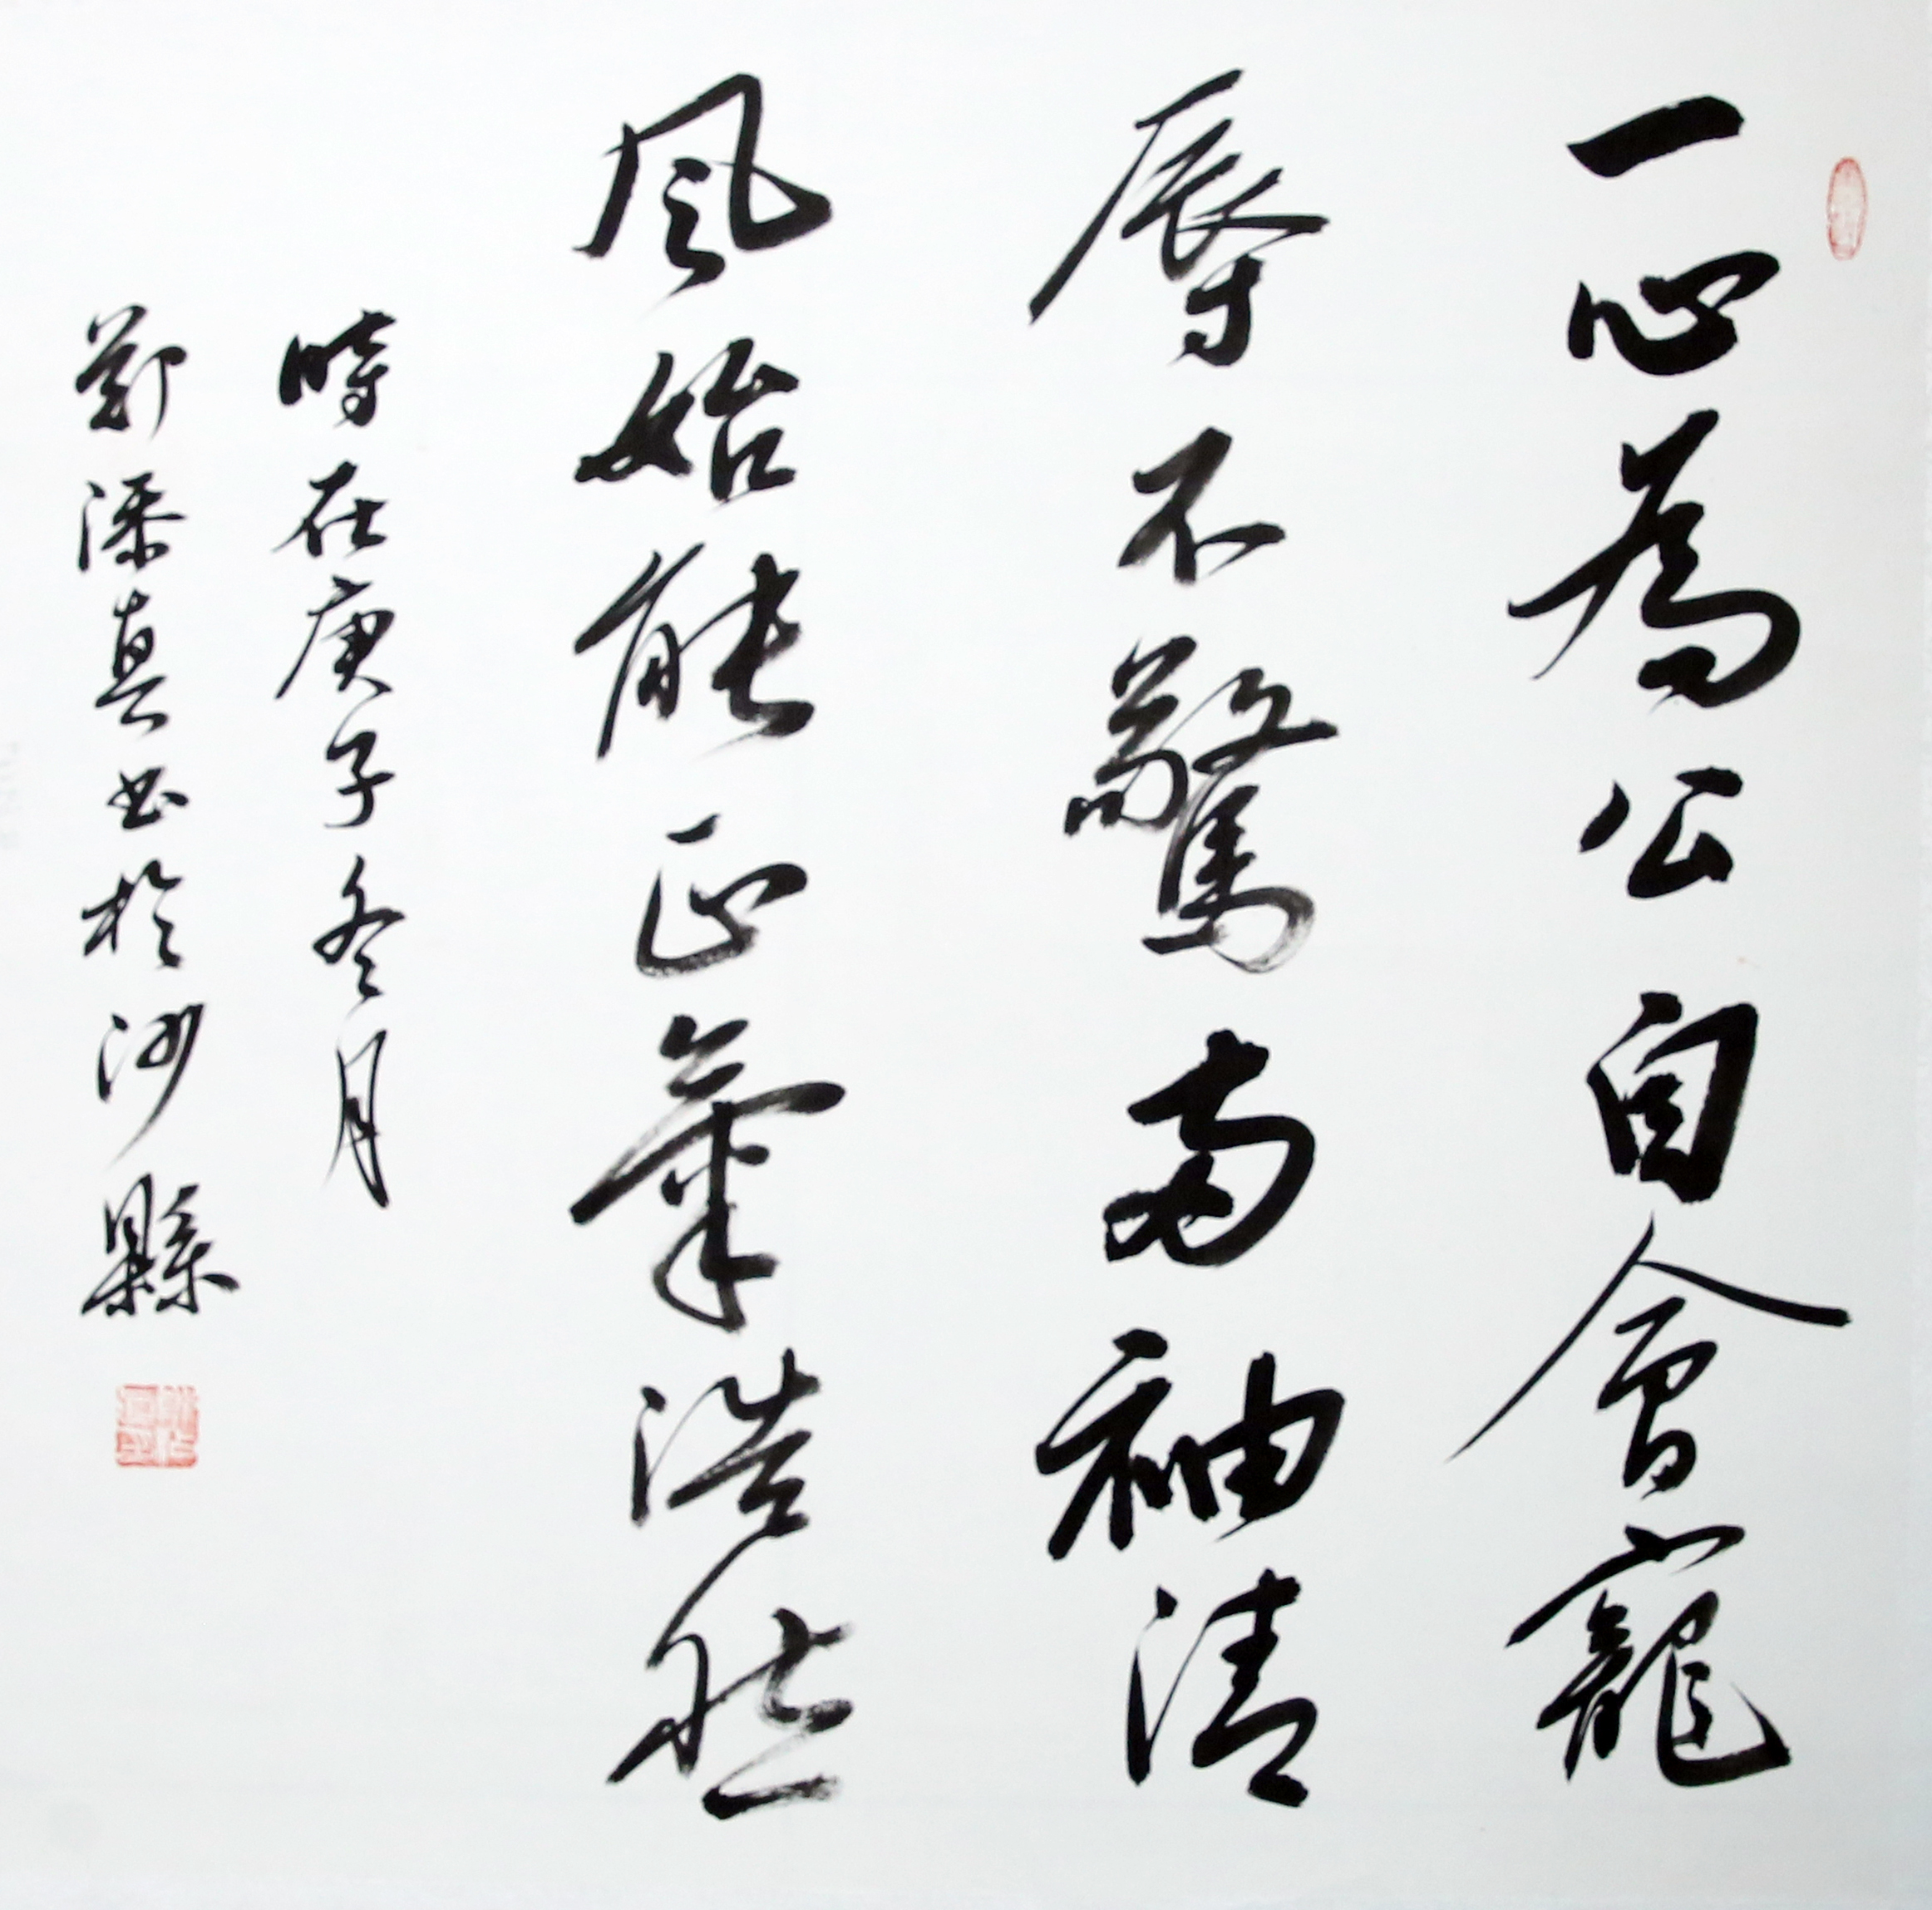 一心為公自會寵
辱不驚両袖清
風始能正氣浩然
時在庚子冬月
鄭添真書於沙縣